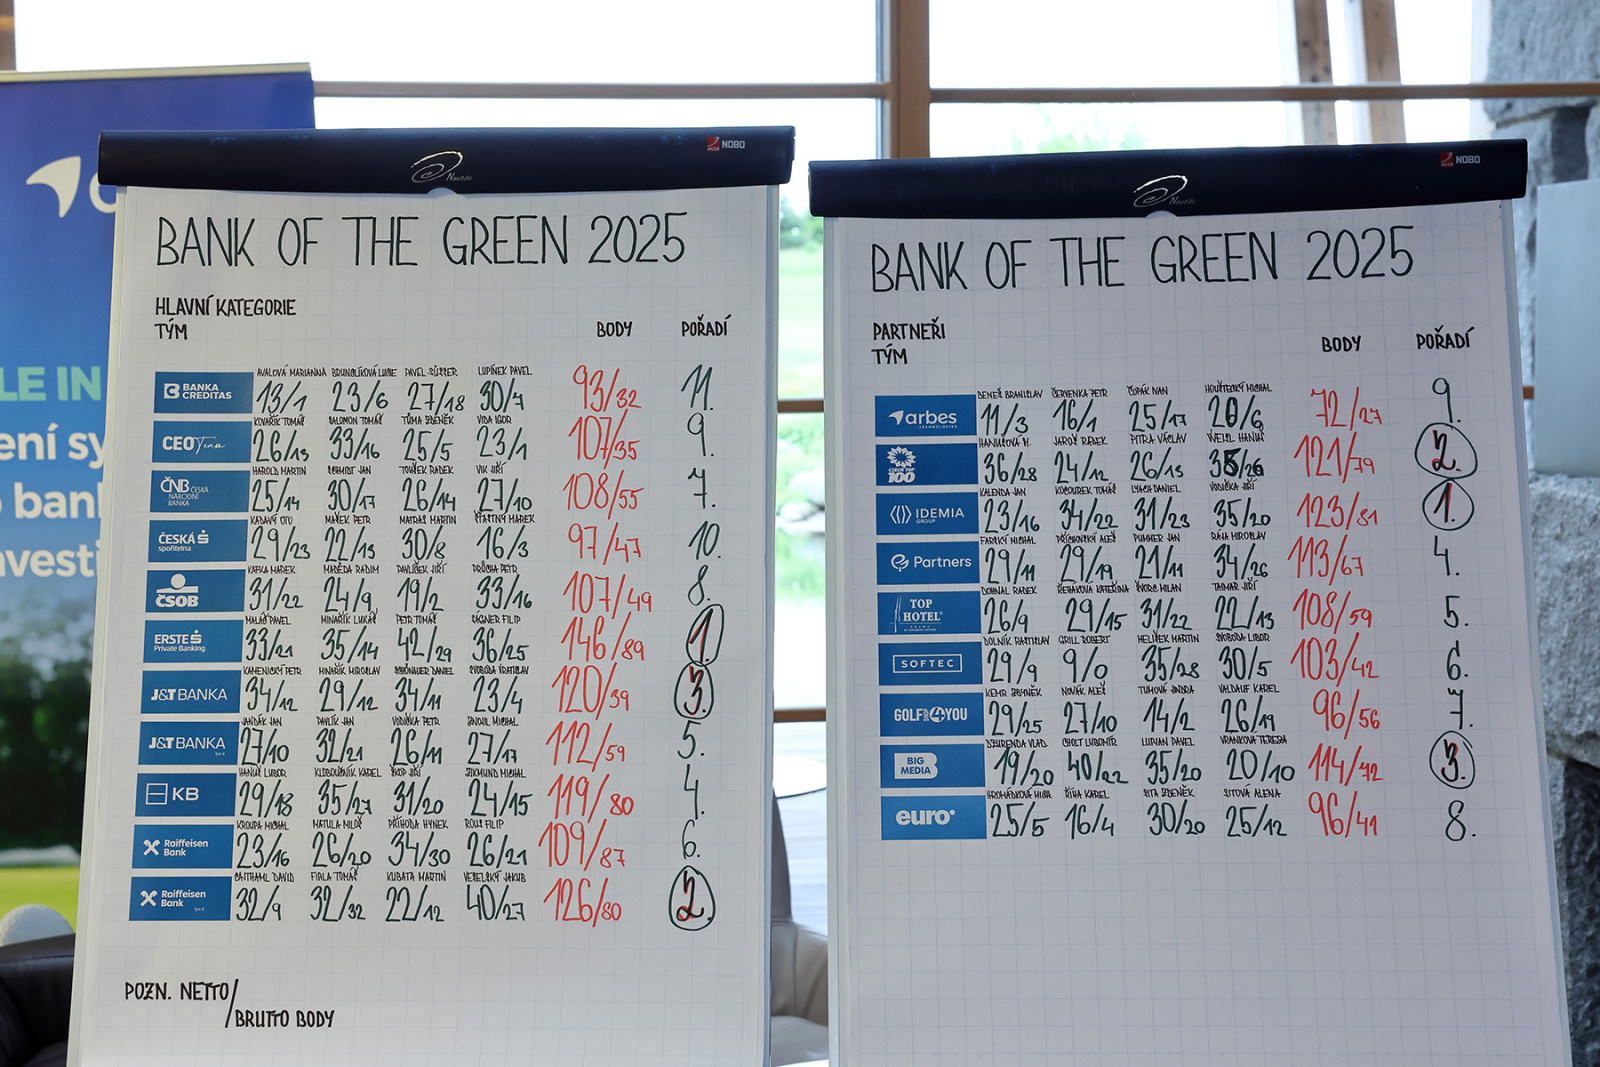 NOBO
Nautile
BANK OF THE GREEN 2025
HLAVNÍ KATEGORIE
TÝM BODY POŘADÍ
AVALOVÁ MARIANNA BRUNCLÍKOVÁ LUCIE PAVEL LUPÍNEK PAVEL
BANKA CREDITAS 13/1 23/6 27/18 30/7 93/32 11.
KOVAŘÍK TOMÁŠ SALOMON TOMÁŠ TŮMA ZDENĚK VIDA IGOR
CEO Team 26/13 33/16 25/5 23/1 107/35 9.
HAROLD MARTIN SCHMIDT JAN TOUŠEK RADEK VIK JIŘÍ
ČNB ČESKÁ NÁRODNÍ BANKA 25/14 30/17 26/14 27/10 108/55 7.
KADAVÝ OTO MAŠEK PETR MATRAS MARTIN ŠŤASTNÝ MAREK
ČESKÁ spořitelna 29/23 22/13 30/8 16/3 97/47 10.
KAFKA MAREK MADĚRA RADIM PAVLÍČEK JIŘÍ PRŮCHA PETR
ČSOB 31/22 24/9 19/2 33/16 107/49 8.
MALÁŠ PAVEL MINAŘÍK LUKÁŠ PETR TOMÁŠ SÁGNER FILIP
ERSTE Private Banking 33/21 35/14 42/29 36/25 146/89 1.
KAMENICKÝ PETR MINAŘÍK MIROSLAV SCHÖNAUER DANIEL SVOBODA VRATISLAV
J&T BANKA 34/12 29/12 34/11 23/4 120/39 3.
JANDÁK JAN PAVLÍK JAN VODIČKA PETR MICHAL
J&T BANKA 27/10 32/21 26/11 27/17 112/59 5.
HANUŠ LUBOR KLOBOUČNÍK KAREL ŠKOP JIŘÍ ZIKMUND MICHAL
KB 29/18 35/27 31/20 24/15 119/80 4.
KROUPA MICHAL MATULA MILOŠ PŘÍHODA HYNEK ROUS FILIP
Raiffeisen Bank 23/16 26/20 34/30 26/21 109/87 6.
CAITHAML DAVID FIRLA TOMÁŠ KUBATA MARTIN VESELSKÝ JAKUB
Raiffeisen Bank 32/9 32/32 22/12 40/27 126/80 2.
POZN. NETTO/
BRUTTO BODY
NOBO
Nautile
BANK OF THE GREEN 2025
PARTNEŘI
TÝM BODY POŘADÍ
BENEŠ BRANISLAV ČERVENKA PETR ČUPÁK IVAN HOUŠTECKÝ MICHAL
arbes TECHNOLOGIES 11/3 16/1 25/17 20/6 72/27 9.
HANUŠOVÁ M. JAROŠ RADEK PITRA VÁCLAV WEISL HANUŠ
CZECH TOP 100 36/28 24/12 26/13 35/26 121/79 2.
KALENDA JAN KOCOUREK TOMÁŠ LYACH DANIEL VODIČKA JIŘÍ
IDEMIA GROUP 23/16 34/22 31/23 35/20 123/81 1.
FARSKÝ MICHAL PŘÍCHOVSKÝ ALEŠ PUMMER JAN RÁJA MIROSLAV
Partners 29/11 29/19 21/11 34/26 113/67 4.
DOHNAL RADEK ŘEHÁKOVÁ KATEŘINA ŠVORC MILAN TAJMAR JIŘÍ
TOP HOTEL 26/9 29/15 31/22 22/13 108/59 5.
DOLNÍK RASTISLAV GRILL ROBERT HELÍSEK MARTIN SVOBODA LIBOR
SOFTEC 29/9 9/0 35/28 30/5 103/42 6.
KEHR ZBYNĚK NOVÁK ALEŠ TUMOVÁ JINDRA VALDAUF KAREL
GOLF 4YOU 29/25 27/10 14/2 26/19 96/56 7.
DZURENDA VLAD. CHOLT LUBOMÍR LURJAN PAVEL VRÁNKOVÁ TEREZA
BIG MEDIA 19/20 40/22 35/20 20/10 114/72 3.
HROMÁDKOVÁ MICH ŘÍHA KAREL SITA ZDENĚK SITOVÁ ALENA
euro 25/5 16/4 30/20 25/12 96/41 8.
LE IN
ení sy
bank
nvesti